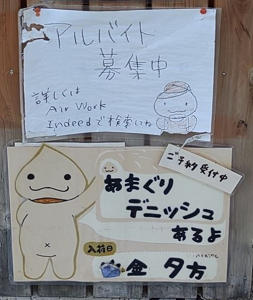 アルバイト
募集中
詳しくは
Air Work
Indeedで検索してね
ご予約受付中
あまぐり
デニッシュ
あるよ
入荷日
金 夕方